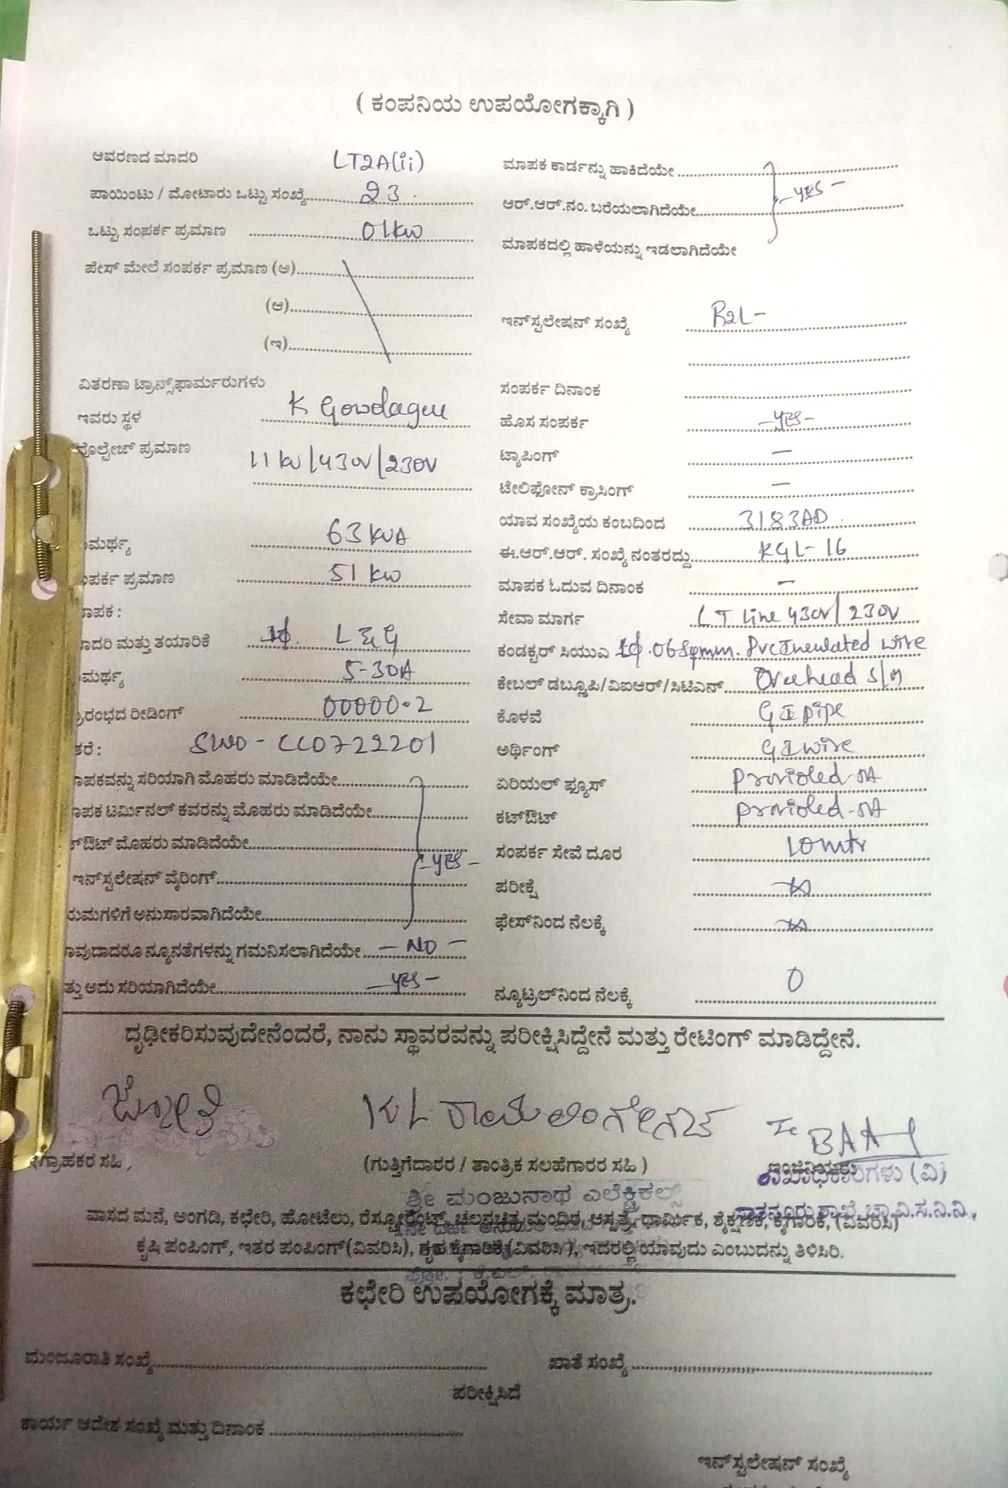 ( ಕಂಪನಿಯ ಉಪಯೋಗಕ್ಕಾಗಿ )
ಆವರಣದ ಮಾದರಿ LT2A(ii)
ಪಾಯಿಂಟು / ಮೋಟಾರು ಒಟ್ಟು ಸಂಖ್ಯೆ 23
ಒಟ್ಟು ಸಂಪರ್ಕ ಪ್ರಮಾಣ 01kw
ಪೇಸ್ ಮೇಲೆ ಸಂಪರ್ಕ ಪ್ರಮಾಣ (ಅ)
(ಆ)
(ಇ)
ವಿತರಣಾ ಟ್ರಾನ್ಸ್‌ಫಾರ್ಮರುಗಳು
ಇವರು ಸ್ಥಳ K Gowdagere
ವೋಲ್ಟೇಜ್ ಪ್ರಮಾಣ 11kv/430v/230v
ಮರ್ಥ್ಯ 63 kVA
ಪರ್ಕ ಪ್ರಮಾಣ 51 kw
ಾಪಕ :
ಾದರಿ ಮತ್ತು ತಯಾರಿಕೆ 1ϕ. L&G
ಮರ್ಥ್ಯ 5-30A
ರಂಭದ ರೀಡಿಂಗ್ 00000.2
ತರೆ : SWO - CC0722201
ಾಪಕವನ್ನು ಸರಿಯಾಗಿ ಮೊಹರು ಮಾಡಿದೆಯೇ
ಾಪಕ ಟರ್ಮಿನಲ್ ಕವರನ್ನು ಮೊಹರು ಮಾಡಿದೆಯೇ
ಔಟ್ ಮೊಹರು ಮಾಡಿದೆಯೇ
ಇನ್‌ಸ್ಟಲೇಷನ್ ವೈರಿಂಗ್ - yes -
ರುಮಗಳಿಗೆ ಅನುಸಾರವಾಗಿದೆಯೇ
ಾವುದಾದರೂ ನ್ಯೂನತೆಗಳನ್ನು ಗಮನಿಸಲಾಗಿದೆಯೇ - NO -
ತ್ತು ಅದು ಸರಿಯಾಗಿದೆಯೇ - yes -
ಮಾಪಕ ಕಾರ್ಡನ್ನು ಹಾಕಿದೆಯೇ
ಆರ್.ಆರ್.ನಂ. ಬರೆಯಲಾಗಿದೆಯೇ - yes -
ಮಾಪಕದಲ್ಲಿ ಹಾಳೆಯನ್ನು ಇಡಲಾಗಿದೆಯೇ
ಇನ್‌ಸ್ಟಲೇಷನ್ ಸಂಖ್ಯೆ
ಸಂಪರ್ಕ ದಿನಾಂಕ
ಹೊಸ ಸಂಪರ್ಕ - yes -
ಟ್ಯಾಪಿಂಗ್ -
ಟೇಲಿಫೋನ್ ಕ್ರಾಸಿಂಗ್ -
ಯಾವ ಸಂಖ್ಯೆಯ ಕಂಬದಿಂದ 3183AD
ಈ.ಆರ್.ಆರ್. ಸಂಖ್ಯೆ ನಂತರದ್ದು KGL-16
ಮಾಪಕ ಓದುವ ದಿನಾಂಕ -
ಸೇವಾ ಮಾರ್ಗ LT line 430v/230v
ಕಂಡಕ್ಟರ್ ಸಿಯುಎ 1ϕ.06sqmm. Pvc Insulated wire
ಕೇಬಲ್ ಡಬ್ಲೂಪಿ/ವಿಐಆರ್/ಸಿಟಿಎನ್ Overhead s/m
ಕೊಳವೆ GI pipe
ಅರ್ಥಿಂಗ್ GI wire
ಏರಿಯಲ್ ಫ್ಯೂಸ್ provided-5A
ಕಟ್‌ಔಟ್ provided-5A
ಸಂಪರ್ಕ ಸೇವೆ ದೂರ 10mtr
ಪರೀಕ್ಷೆ
ಫೇಸ್‌ನಿಂದ ನೆಲಕ್ಕೆ
ನ್ಯೂಟ್ರಲ್‌ನಿಂದ ನೆಲಕ್ಕೆ 0
ದೃಢೀಕರಿಸುವುದೇನೆಂದರೆ, ನಾನು ಸ್ಥಾವರವನ್ನು ಪರೀಕ್ಷಿಸಿದ್ದೇನೆ ಮತ್ತು ರೇಟಿಂಗ್ ಮಾಡಿದ್ದೇನೆ.
(ಗ್ರಾಹಕರ ಸಹಿ,
(ಗುತ್ತಿಗೆದಾರರ / ತಾಂತ್ರಿಕ ಸಲಹೆಗಾರರ ಸಹಿ )
ಶ್ರೀ ಮಂಜುನಾಥ ಎಲೆಕ್ಟ್ರಿಕಲ್ಸ್
ವಾಸದ ಮನೆ, ಅಂಗಡಿ, ಕಛೇರಿ, ಹೋಟೆಲು, ರೆಸ್ಟೋರೆಂಟ್, ಚಲನಚಿತ್ರ ಮಂದಿರ, ಆಸ್ಪತ್ರೆ, ಧಾರ್ಮಿಕ, ಶೈಕ್ಷಣಿಕ, ಕೈಗಾರಿಕೆ, (ವಿವರಿಸಿ)
ಕೃಷಿ ಪಂಪಿಂಗ್, ಇತರ ಪಂಪಿಂಗ್(ವಿವರಿಸಿ), ಗೃಹ ಕೈಗಾರಿಕೆ(ವಿವರಿಸಿ), ಇದರಲ್ಲಿ ಯಾವುದು ಎಂಬುದನ್ನು ತಿಳಿಸಿರಿ.
ಕಛೇರಿ ಉಪಯೋಗಕ್ಕೆ ಮಾತ್ರ.
ಮಂಜೂರಾತಿ ಸಂಖ್ಯೆ ಖಾತೆ ಸಂಖ್ಯೆ
ಪರೀಕ್ಷಿಸಿದೆ
ಕಾರ್ಯ ಆದೇಶ ಸಂಖ್ಯೆ ಮತ್ತು ದಿನಾಂಕ
ಇನ್‌ಸ್ಟಲೇಷನ್ ಸಂಖ್ಯೆ